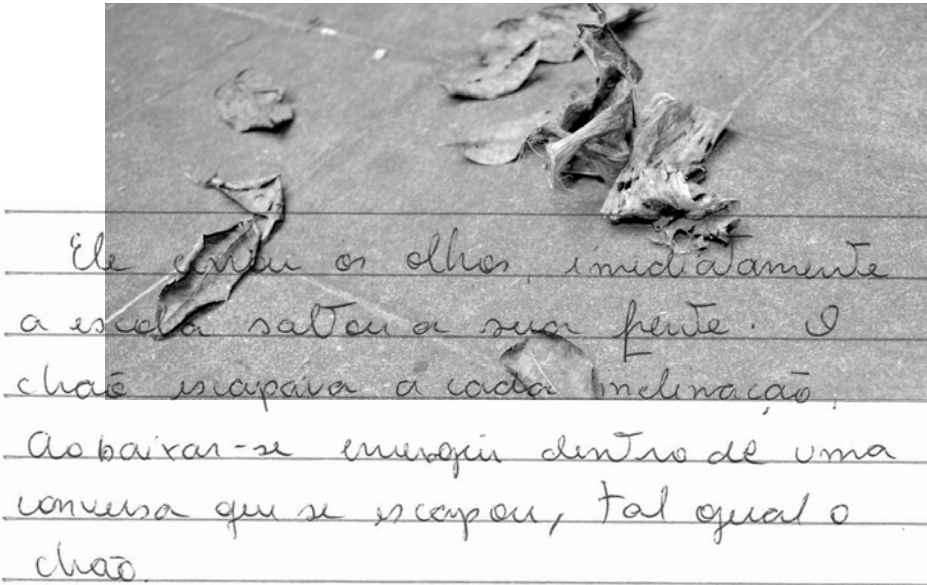 Ele cerrou os olhos, imediatamente
a escada saltou a sua frente. O
chão escapava a cada inclinação.
Ao baixar-se emergiu dentro de uma
conversa que se escapou, tal qual o
chão.